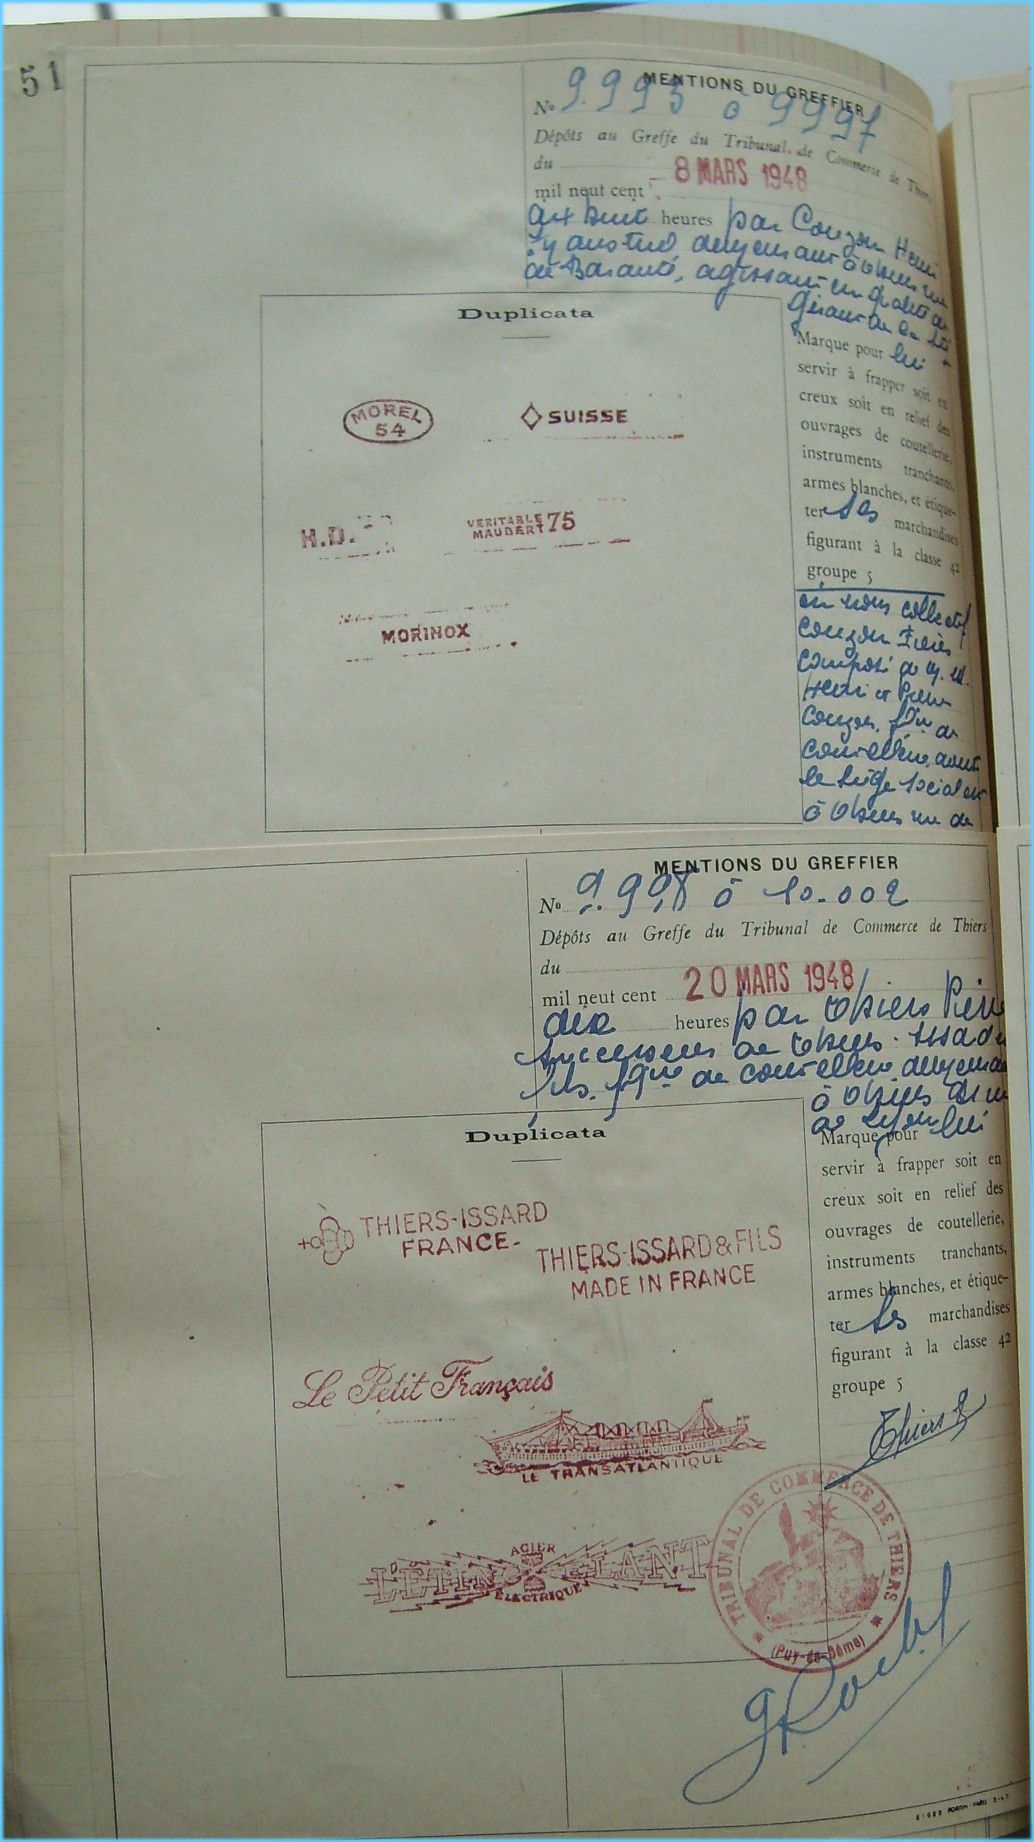 51
MENTIONS DU GREFFIER
No 9.993 à 9997
Dépôts au Greffe du Tribunal de Commerce de Thiers,
du
8 MARS 1948
mil neuf cent
dix huit heures par Couzon Henri
à Thiers rue
de Barante, agissant en qualité de
gérant de la Sté
Duplicata
Marque pour lui
servir à frapper soit en
creux soit en relief des
ouvrages de coutellerie,
instruments tranchants,
armes blanches, et étique-
ter ses marchandises
figurant à la classe 42
groupe 5
MOREL
54
SUISSE
H.D.
VERITABLE
MAUBERT 75
MORINOX
en nom collectif
Couzon Frères
composé de M. M.
Henri et Pierre
Couzon, de
coutellerie, ayant
le siège social
à Thiers rue de
MENTIONS DU GREFFIER
No 9.998 à 10.002
Dépôts au Greffe du Tribunal de Commerce de Thiers
du
20 MARS 1948
mil neuf cent
dix heures par Thiers Pierre
successeur de Thiers-Issard
fils, de coutellerie demeurant
à Thiers
de Lyon
Duplicata
Marque pour lui
servir à frapper soit en
creux soit en relief des
ouvrages de coutellerie,
instruments tranchants,
armes blanches, et étique-
ter ses marchandises
figurant à la classe 42
groupe 5
THIERS-ISSARD
FRANCE-
THIERS-ISSARD & FILS
MADE IN FRANCE
Le Petit Français
LE TRANSATLANTIQUE
ACIER
L'ÉTINCELANT
ÉLECTRIQUE
Thiers
TRIBUNAL DE COMMERCE DE THIERS
(Puy-de-Dôme)